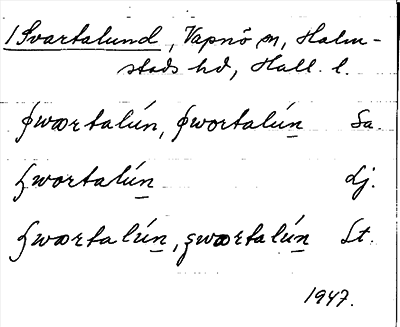 1 Svartalund, Vapnö sn, Halm-
stads hd, Hall. l.
ꞩwærtalún, ꞩwortalún Sa.
ʂwortalún dj.
ʂwærtalún, ʂwærtalún Lt.
1947.